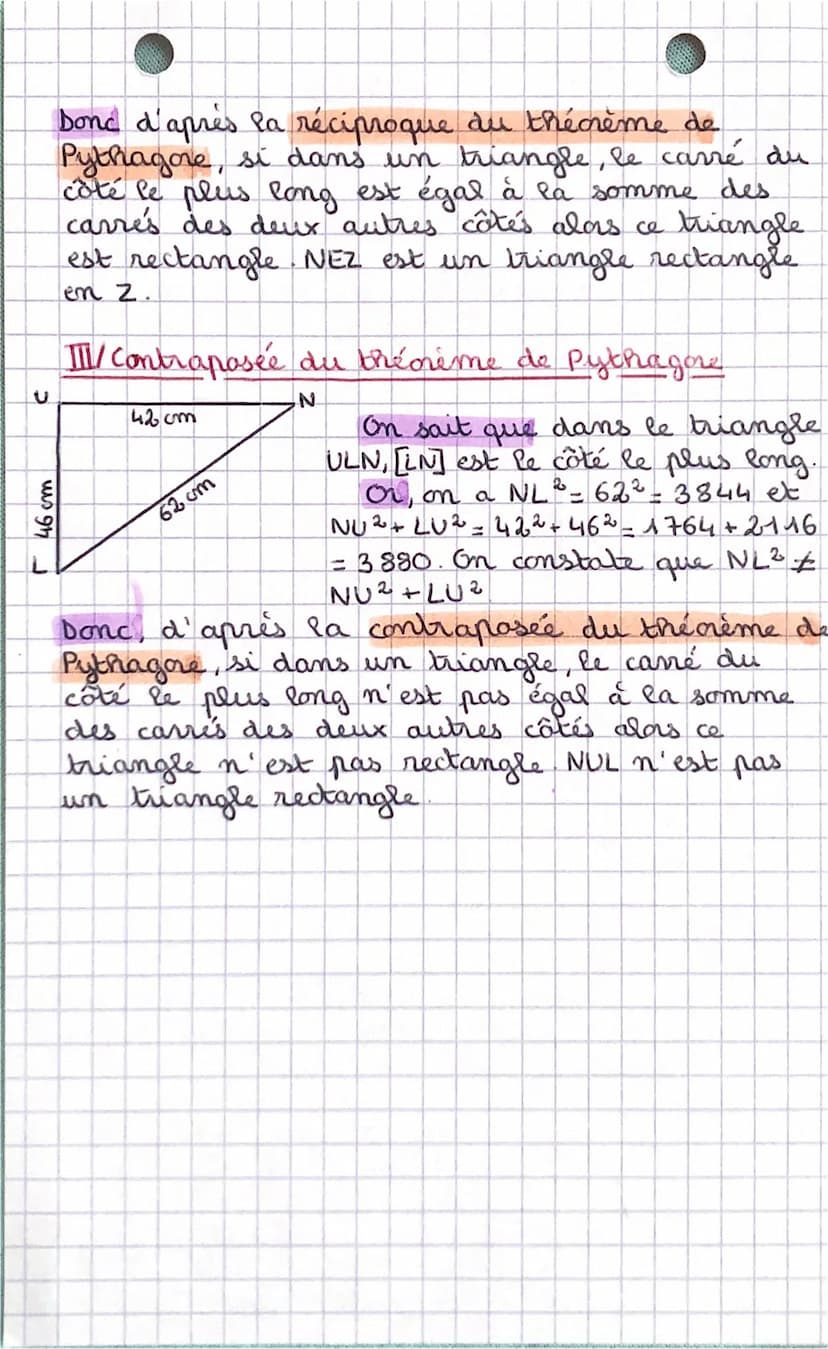 Donc d'après la réciproque du théorème de
Pythagore, si dans un triangle, le carré du
côté le plus long est égal à la somme des
carrés des deux autres côtés alors ce triangle
est rectangle. NEZ est un triangle rectangle
en Z.
III/ Contraposée du théorème de Pythagore
U
42 cm
N
46 cm
62 cm
L
On sait que dans le triangle
ULN, [LN] est le côté le plus long.
Or, on a NL² = 62² = 3844 et
NU² + LU² = 42² + 46² = 1764 + 2116
= 3880. On constate que NL² ≠
NU² + LU²
Donc, d'après la contraposée du théorème de
Pythagore, si dans un triangle, le carré du
côté le plus long n'est pas égal à la somme
des carrés des deux autres côtés alors ce
triangle n'est pas rectangle. NUL n'est pas
un triangle rectangle.